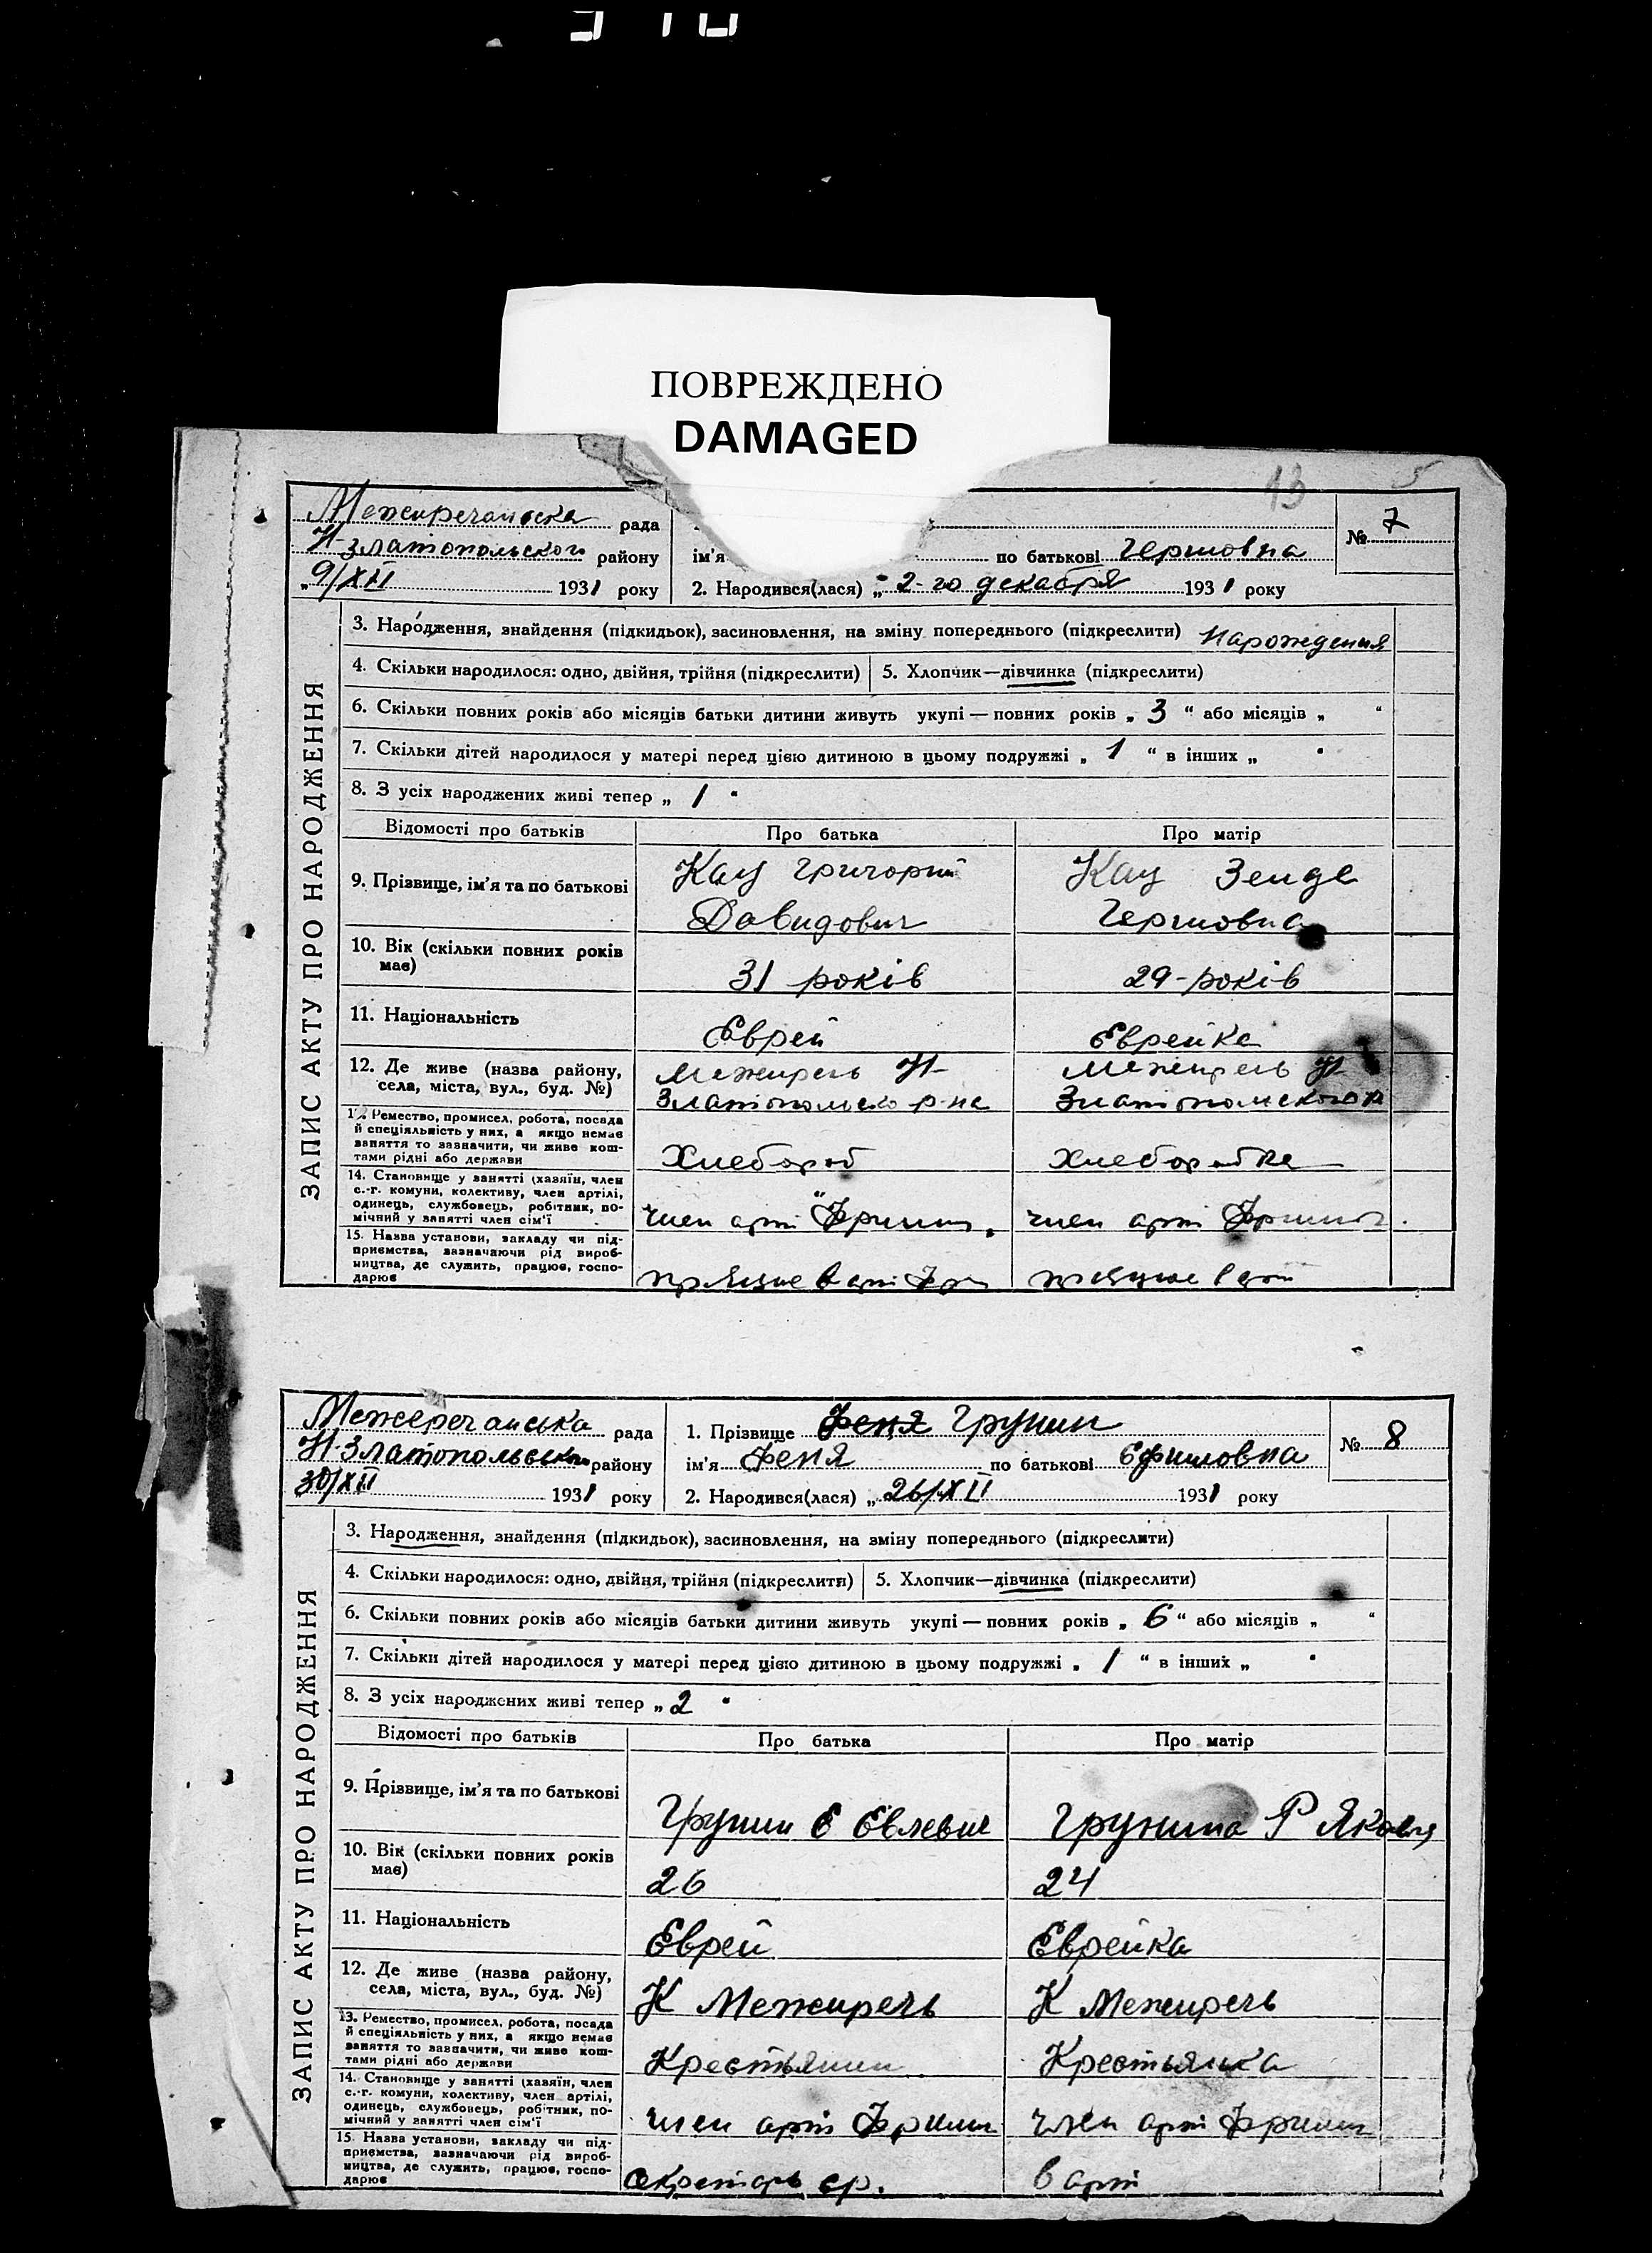 ПОВРЕЖДЕНО
DAMAGED
13 5
Межиречанська рада
Н-Златопольского району
„9/XII 1931 року
ім'я по батькові Гершовна
2. Народився(лася) „2-го декабря 1931 року
№ 7
ЗАПИС АКТУ ПРО НАРОДЖЕННЯ
3. Народження, знайдення (підкидьок), засиновлення, на зміну попереднього (підкреслити) Нарождения
4. Скільки народилося: одно, двійня, трійня (підкреслити) 5. Хлопчик—дівчинка (підкреслити)
6. Скільки повних років або місяців батьки дитини живуть укупі — повних років „ 3 “ або місяців „ “
7. Скільки дітей народилося у матері перед цією дитиною в цьому подружжі „ 1 “ в інших „ “
8. З усіх народжених живі тепер „ 1 “
Відомості про батьків Про батька Про матір
9. Прізвище, ім'я та по батькові
Кац Григорий
Давидович
Кац Зенда
Гершовна
10. Вік (скільки повних років
має)
31 років
29-років
11. Національність
Еврей
Еврейка
12. Де живе (назва району,
села, міста, вул., буд. №)
Межиречь Н-
Златопольско р-на
Межиречь Н-
Златопольского р
13. Ремество, промисел, робота, посада
й спеціяльність у них, а якщо немає
заняття то зазначити, чи живе кош-
тами рідні або держави
Хлебороб
Хлеборобка
14. Становище у занятті (хазяїн, член
с.-г. комуни, колективу, член артілі,
одинець, службовець, робітник, по-
мічний у занятті член сім'ї
член арт „Фрилинг“
член арт Фрилинг
15. Назва установи, закладу чи під-
приємства, зазначаючи рід вироб-
ництва, де служить, працює, госпо-
дарює
працює в арт Фр
працює в арт
Межеречанська рада
Н-Златопольського району
30/XII 1931 року
1. Прізвище Феня Грунин
ім'я Феня по батькові Ефимовна
2. Народився(лася) „ 26/XII 1931 року
№ 8
ЗАПИС АКТУ ПРО НАРОДЖЕННЯ
3. Народження, знайдення (підкидьок), засиновлення, на зміну попереднього (підкреслити)
4. Скільки народилося: одно, двійня, трійня (підкреслити) 5. Хлопчик—дівчинка (підкреслити)
6. Скільки повних років або місяців батьки дитини живуть укупі — повних років „ 6 “ або місяців „ “
7. Скільки дітей народилося у матері перед цією дитиною в цьому подружжі „ 1 “ в інших „ “
8. З усіх народжених живі тепер „ 2 “
Відомості про батьків Про батька Про матір
9. Прізвище, ім'я та по батькові
Грунин Е Евлевич
Грунина Р Яковл
10. Вік (скільки повних років
має)
26
24
11. Національність
Еврей
Еврейка
12. Де живе (назва району,
села, міста, вул., буд. №)
К Межиречь
К Межиречь
13. Ремество, промисел, робота, посада
й спеціяльність у них, а якщо немає
заняття то зазначити, чи живе кош-
тами рідні або держави
Крестьянин
Крестьянка
14. Становище у занятті (хазяїн, член
с.-г. комуни, колективу, член артілі,
одинець, службовець, робітник, по-
мічний у занятті член сім'ї
член арт Фрилинг
член арт Фрилинг
15. Назва установи, закладу чи під-
приємства, зазначаючи рід вироб-
ництва, де служить, працює, госпо-
дарює
секретарь ср.
в арт